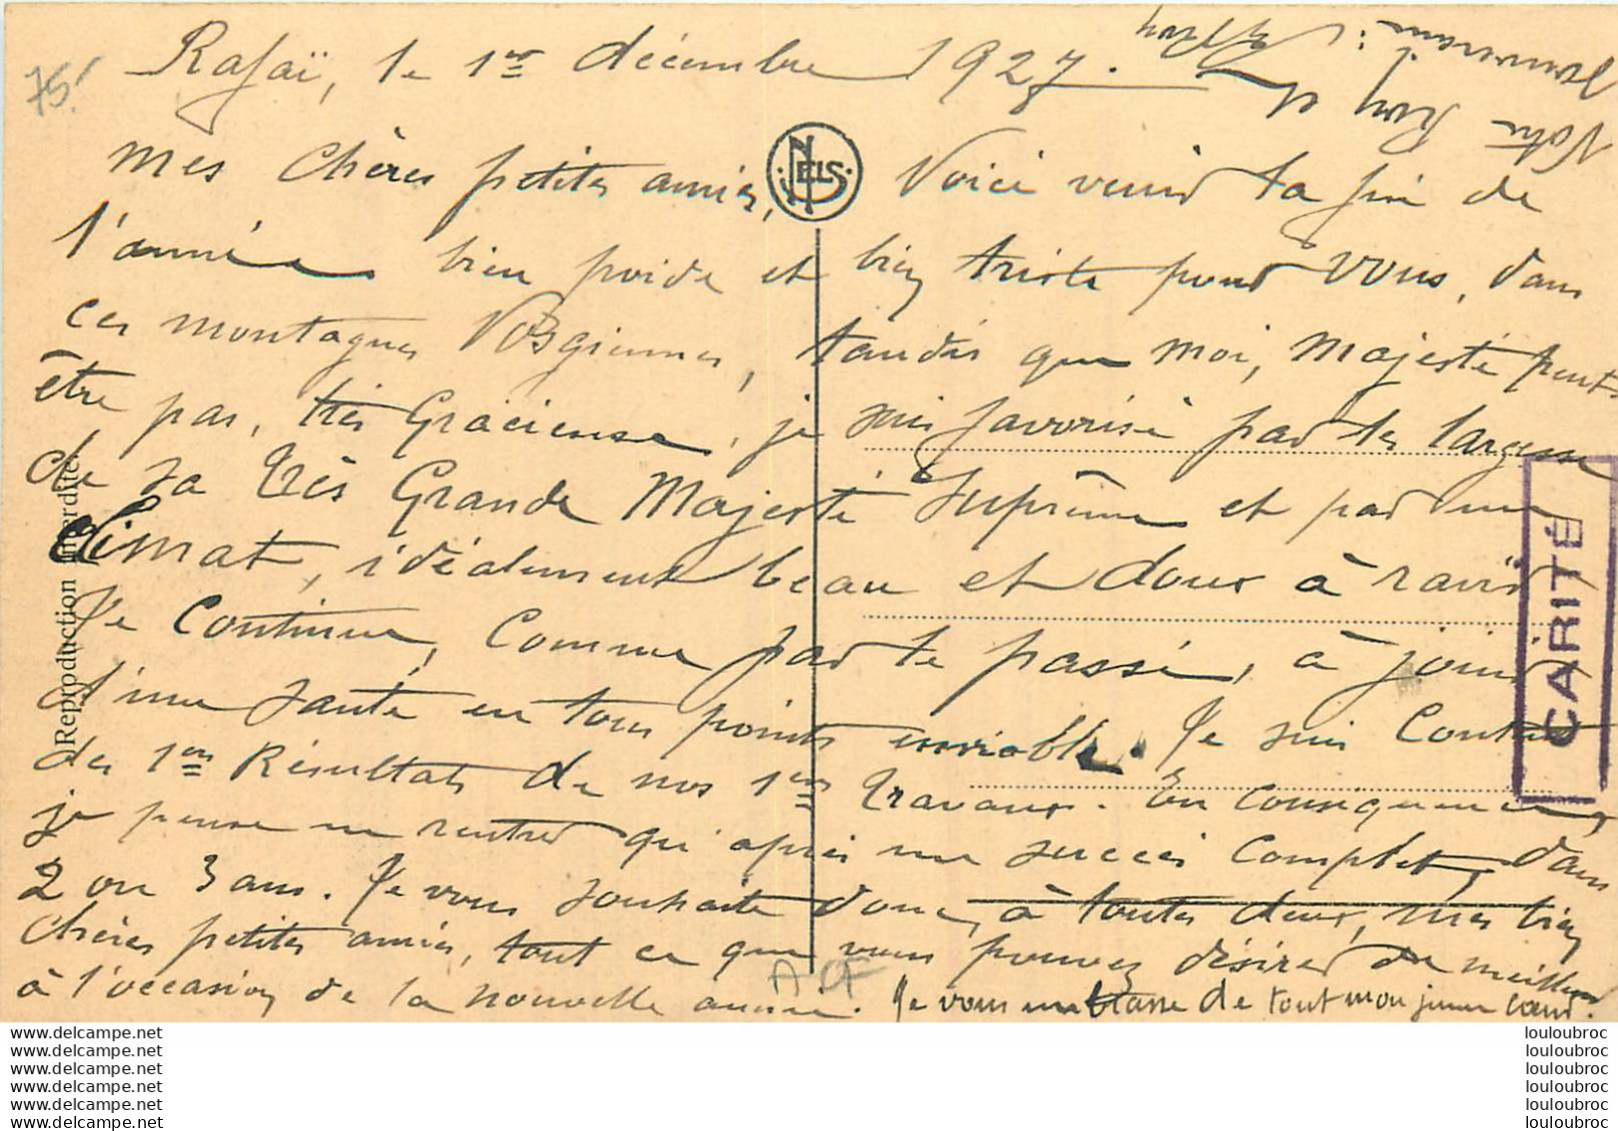 75.-
Rafaï, le 1er décembre 1927.
mes chères petites amies, Voici venir la fin de
l'année bien froide et bien triste pour vous, dans
ces montagnes Vosgiennes, tandis que moi, Majesté peut-
être pas, très Gracieuse, je suis favorisé par les largesses
de sa Très Grande Majesté Suprême et par un
climat, idéalement beau et doux à ravir
Je continue, comme par le passé, à jouir
d'une santé en tous points enviable. Je suis content
des 1ers Résultats de nos 1ers travaux. En conséquence,
je pense ne rentrer qu'après un succès complet, dans
2 ou 3 ans. Je vous souhaite donc, à toutes deux, mes bien
chères petites amies, tout ce que vous pouvez désirer de meilleur
à l'occasion de la nouvelle année. Je vous embrasse de tout mon jeune cœur.
Votre bon et
souverain :
NELS
Reproduction interdite
CARITÉ
A CF
delcampe.net
delcampe.net
delcampe.net
delcampe.net
delcampe.net
delcampe.net
louloubroc
louloubroc
louloubroc
louloubroc
louloubroc
louloubroc